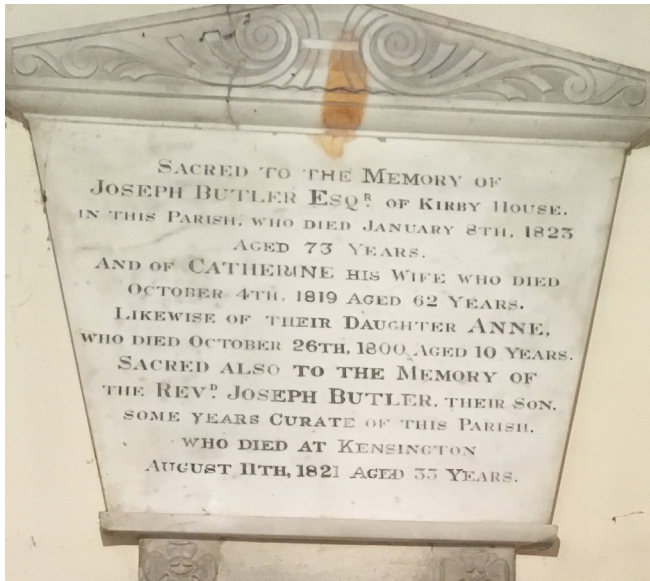 SACRED TO THE MEMORY OF
JOSEPH BUTLER ESQR. OF KIRBY HOUSE,
IN THIS PARISH, WHO DIED JANUARY 8TH, 1823
AGED 73 YEARS.
AND OF CATHERINE HIS WIFE WHO DIED
OCTOBER 4TH, 1819 AGED 62 YEARS.
LIKEWISE OF THEIR DAUGHTER ANNE,
WHO DIED OCTOBER 26TH, 1800, AGED 10 YEARS.
SACRED ALSO TO THE MEMORY OF
THE REVD. JOSEPH BUTLER, THEIR SON,
SOME YEARS CURATE OF THIS PARISH,
WHO DIED AT KENSINGTON
AUGUST 11TH, 1821 AGED 33 YEARS.